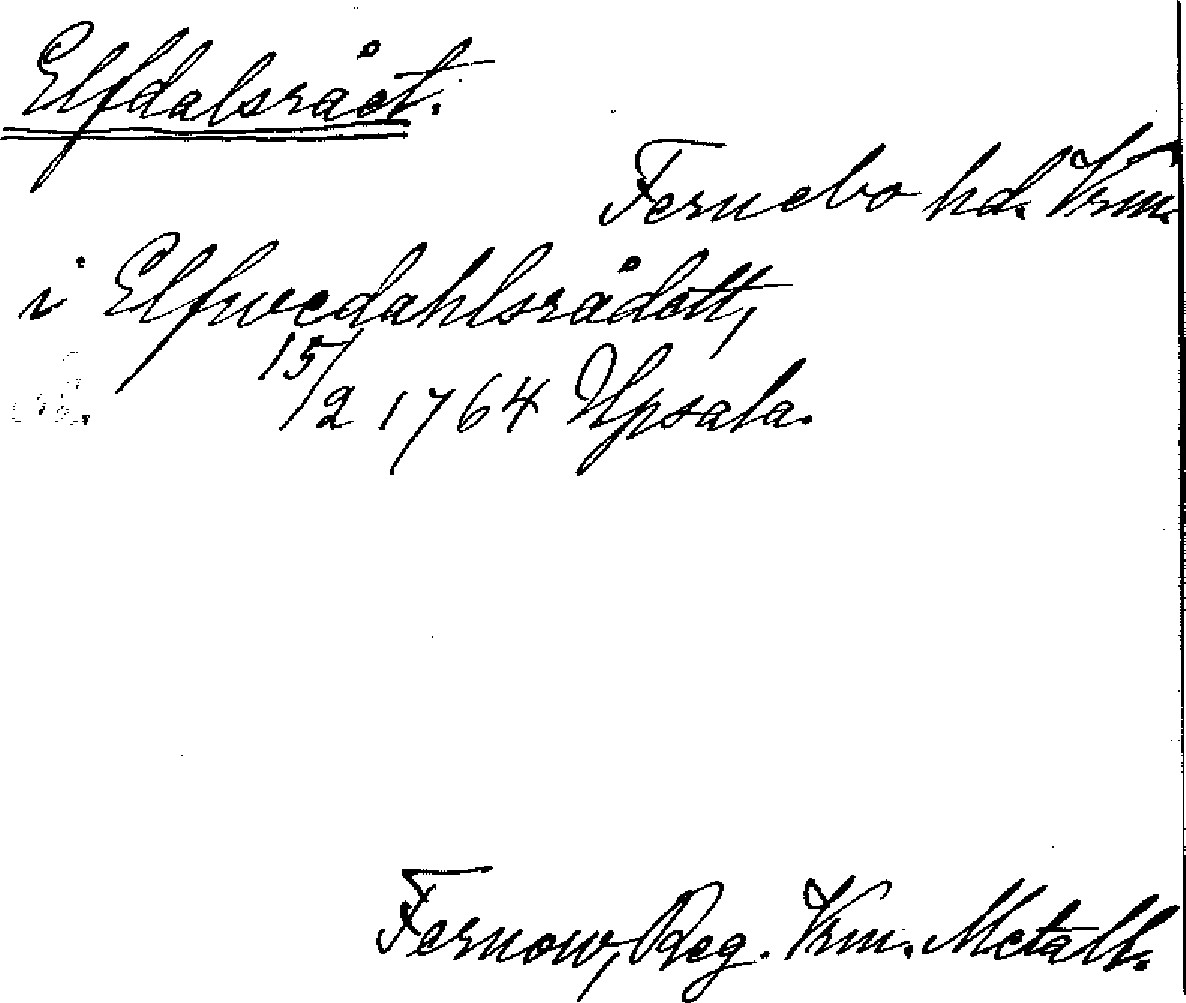 Elfdalsrået.
Fernebo hd. Vrm.
i Elfwedahlsrådett,
15/2 1764 Upsala.
Fernow, Reg. Vrm. Metall.